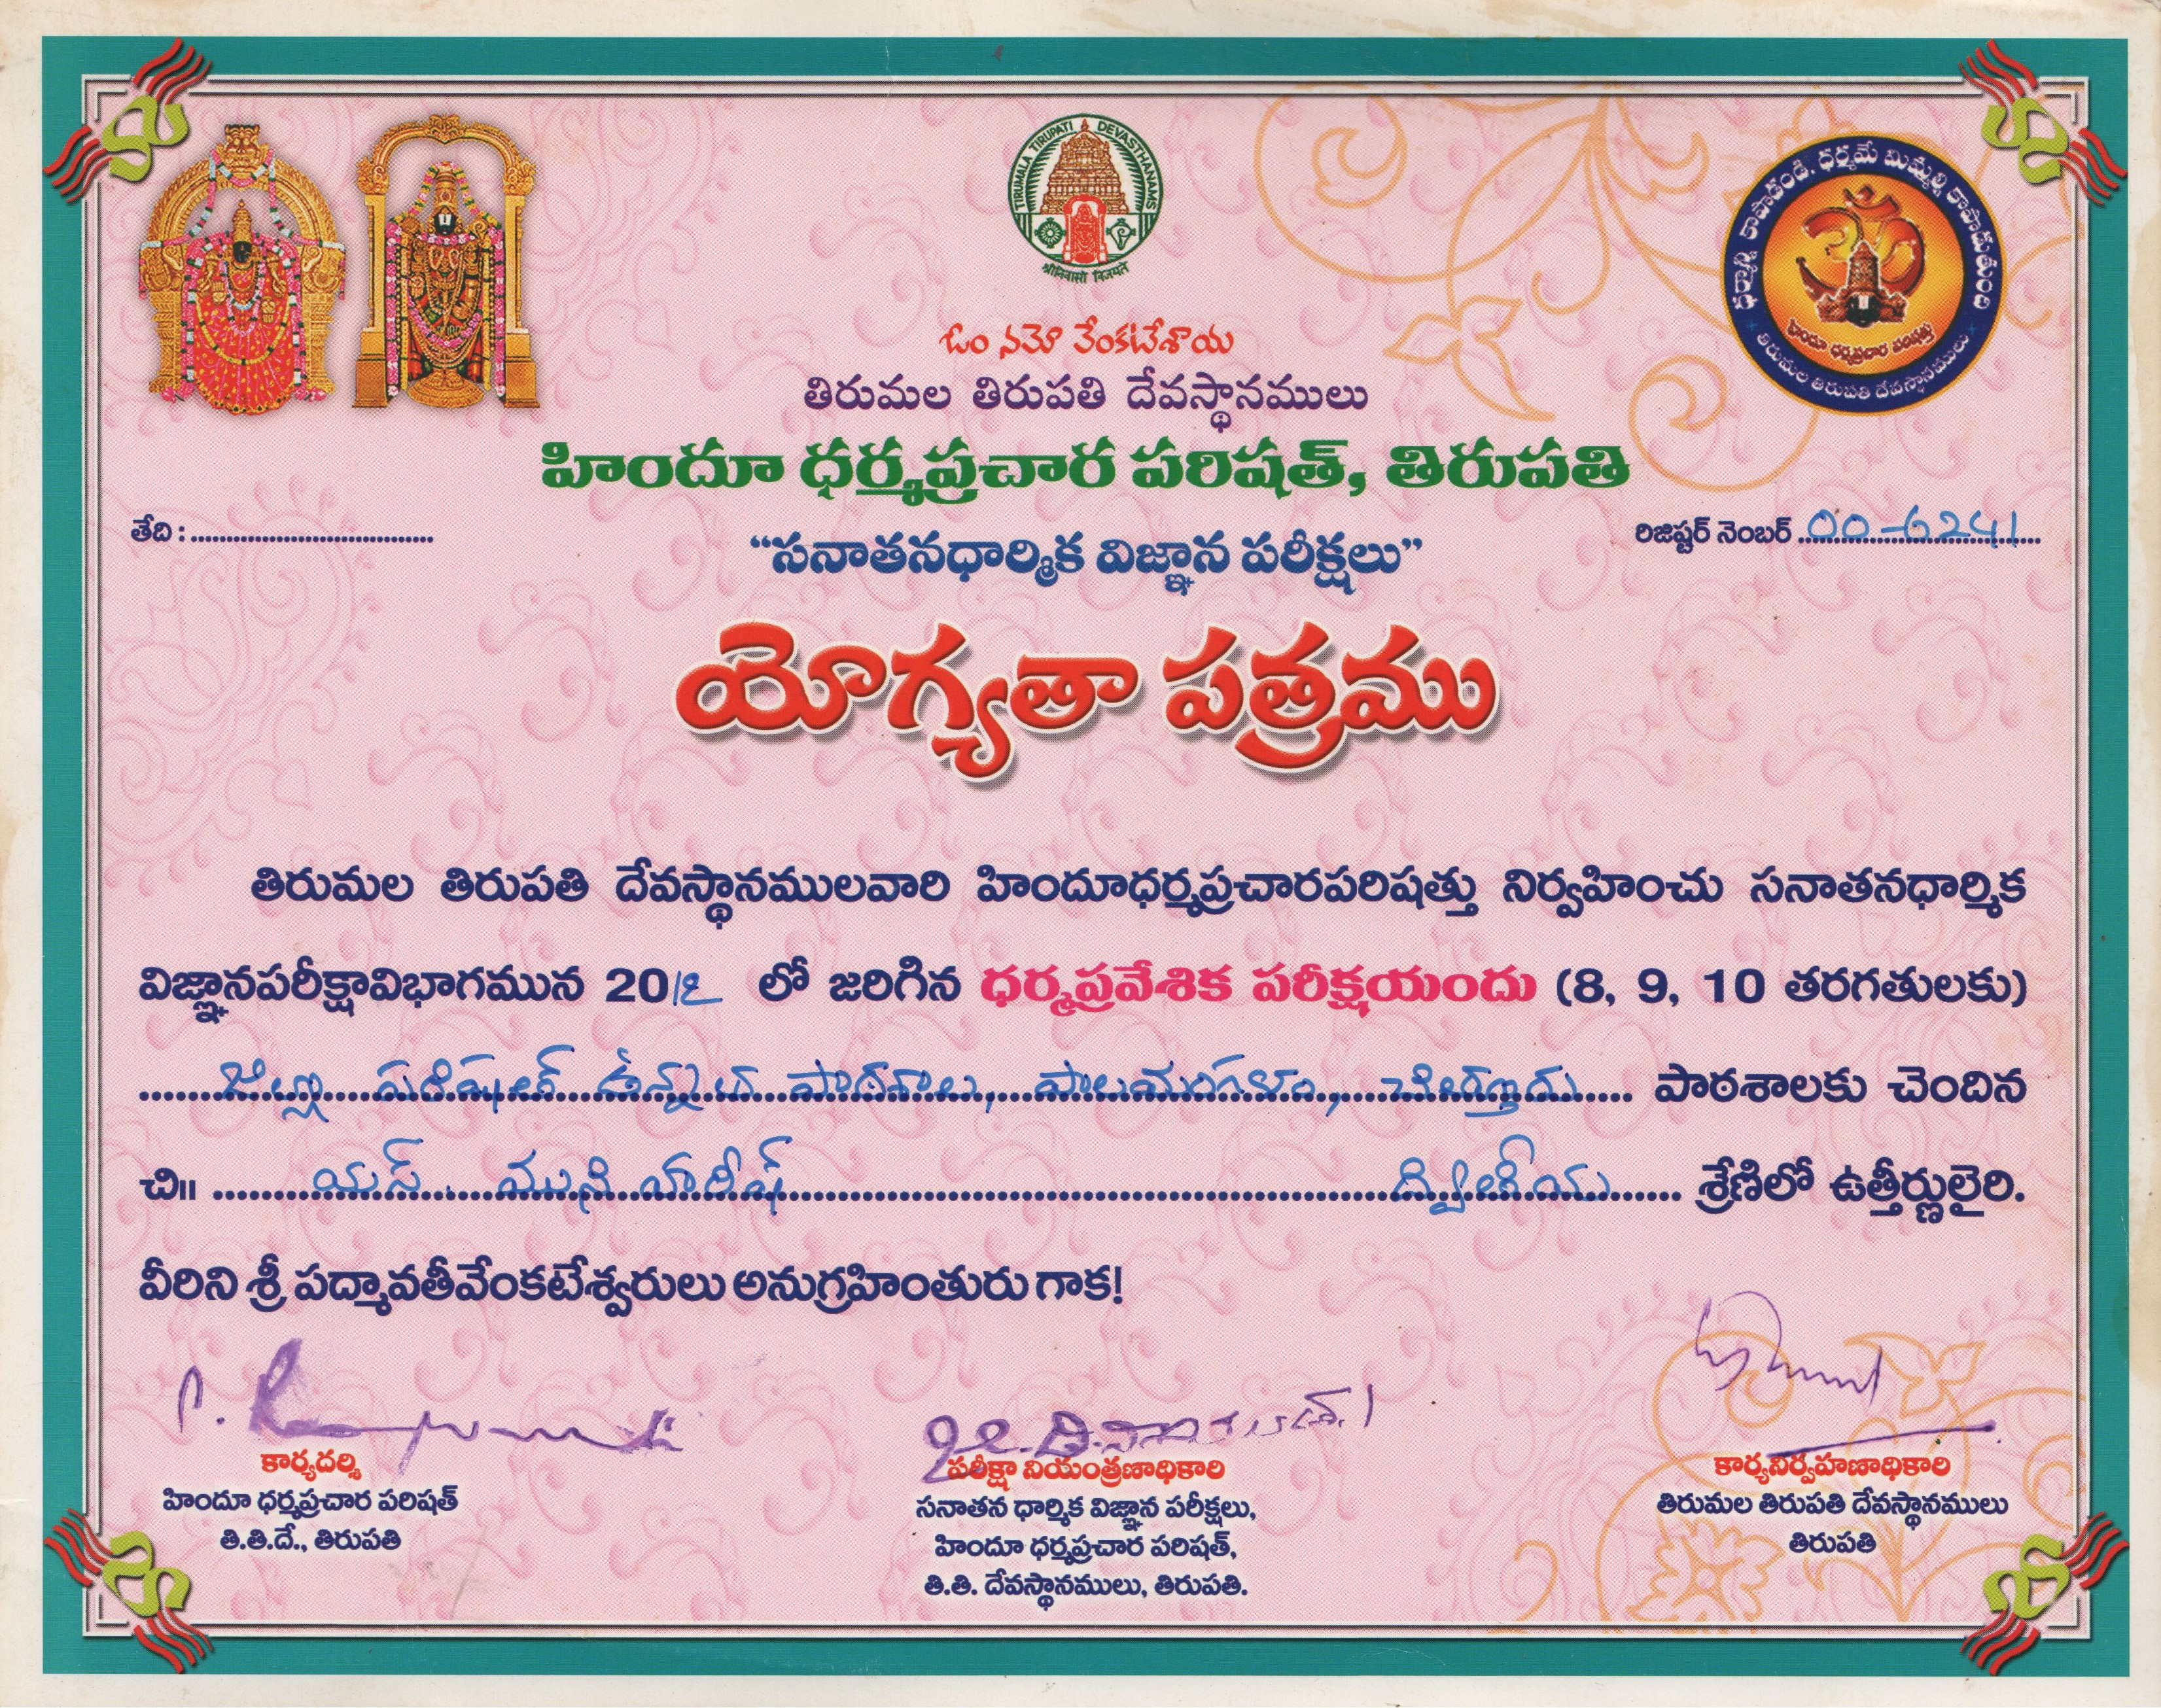 TIRUMALA TIRUPATI DEVASTHANAMS
श्रीनिवासो विजयते
ధర్మాన్ని కాపాడండి. ధర్మమే మిమ్మల్ని కాపాడుతుంది
హిందూ ధర్మప్రచార పరిషత్తు
తిరుమల తిరుపతి దేవస్థానములు
ఓం నమో వేంకటేశాయ
తిరుమల తిరుపతి దేవస్థానములు
హిందూ ధర్మప్రచార పరిషత్, తిరుపతి
తేది : ..................................
రిజిష్టర్ నెంబర్ 00-6241
“సనాతనధార్మిక విజ్ఞాన పరీక్షలు”
యోగ్యతా పత్రము
తిరుమల తిరుపతి దేవస్థానములవారి హిందూధర్మప్రచారపరిషత్తు నిర్వహించు సనాతనధార్మిక
విజ్ఞానపరీక్షావిభాగమున 2012 లో జరిగిన ధర్మప్రవేశిక పరీక్షయందు (8, 9, 10 తరగతులకు)
జిల్లా పరిషత్ ఉన్నత పాఠశాల, పాలమంగళం, చిత్తూరు పాఠశాలకు చెందిన
చి॥ యస్. ముని హరీష్ ద్వితీయ శ్రేణిలో ఉత్తీర్ణులైరి.
వీరిని శ్రీ పద్మావతీవేంకటేశ్వరులు అనుగ్రహింతురు గాక!
కార్యదర్శి
హిందూ ధర్మప్రచార పరిషత్
తి.తి.దే., తిరుపతి
పరీక్షా నియంత్రణాధికారి
సనాతన ధార్మిక విజ్ఞాన పరీక్షలు,
హిందూ ధర్మప్రచార పరిషత్,
తి.తి. దేవస్థానములు, తిరుపతి.
కార్యనిర్వహణాధికారి
తిరుమల తిరుపతి దేవస్థానములు
తిరుపతి